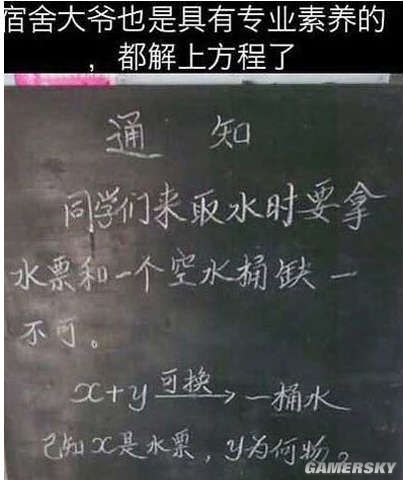 宿舍大爷也是具有专业素养的
，都解上方程了
通 知
同学们来取水时要拿
水票和一个空水桶缺一
不可。
x+y 可换→ 一桶水
已知x是水票，y为何物？
GAMERSKY